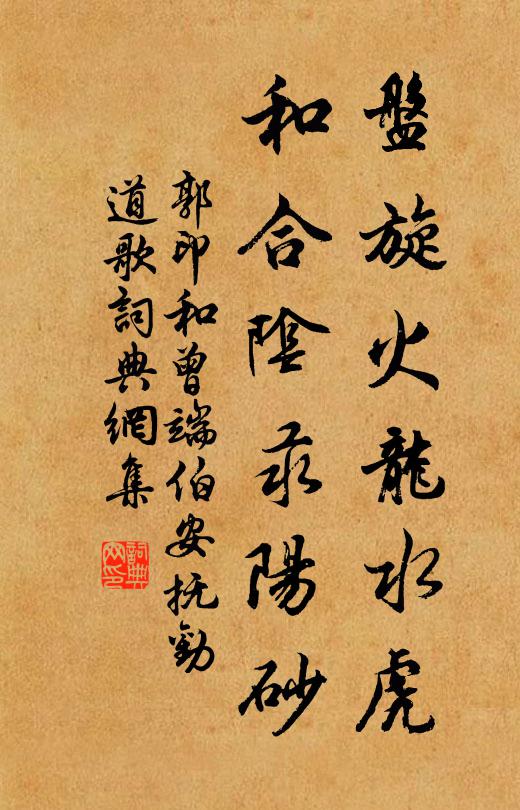 盤旋火龍水虎
和合陰汞陽砂
郭印和曾端伯安抚勸
道歌詞典網集
詞典
网印